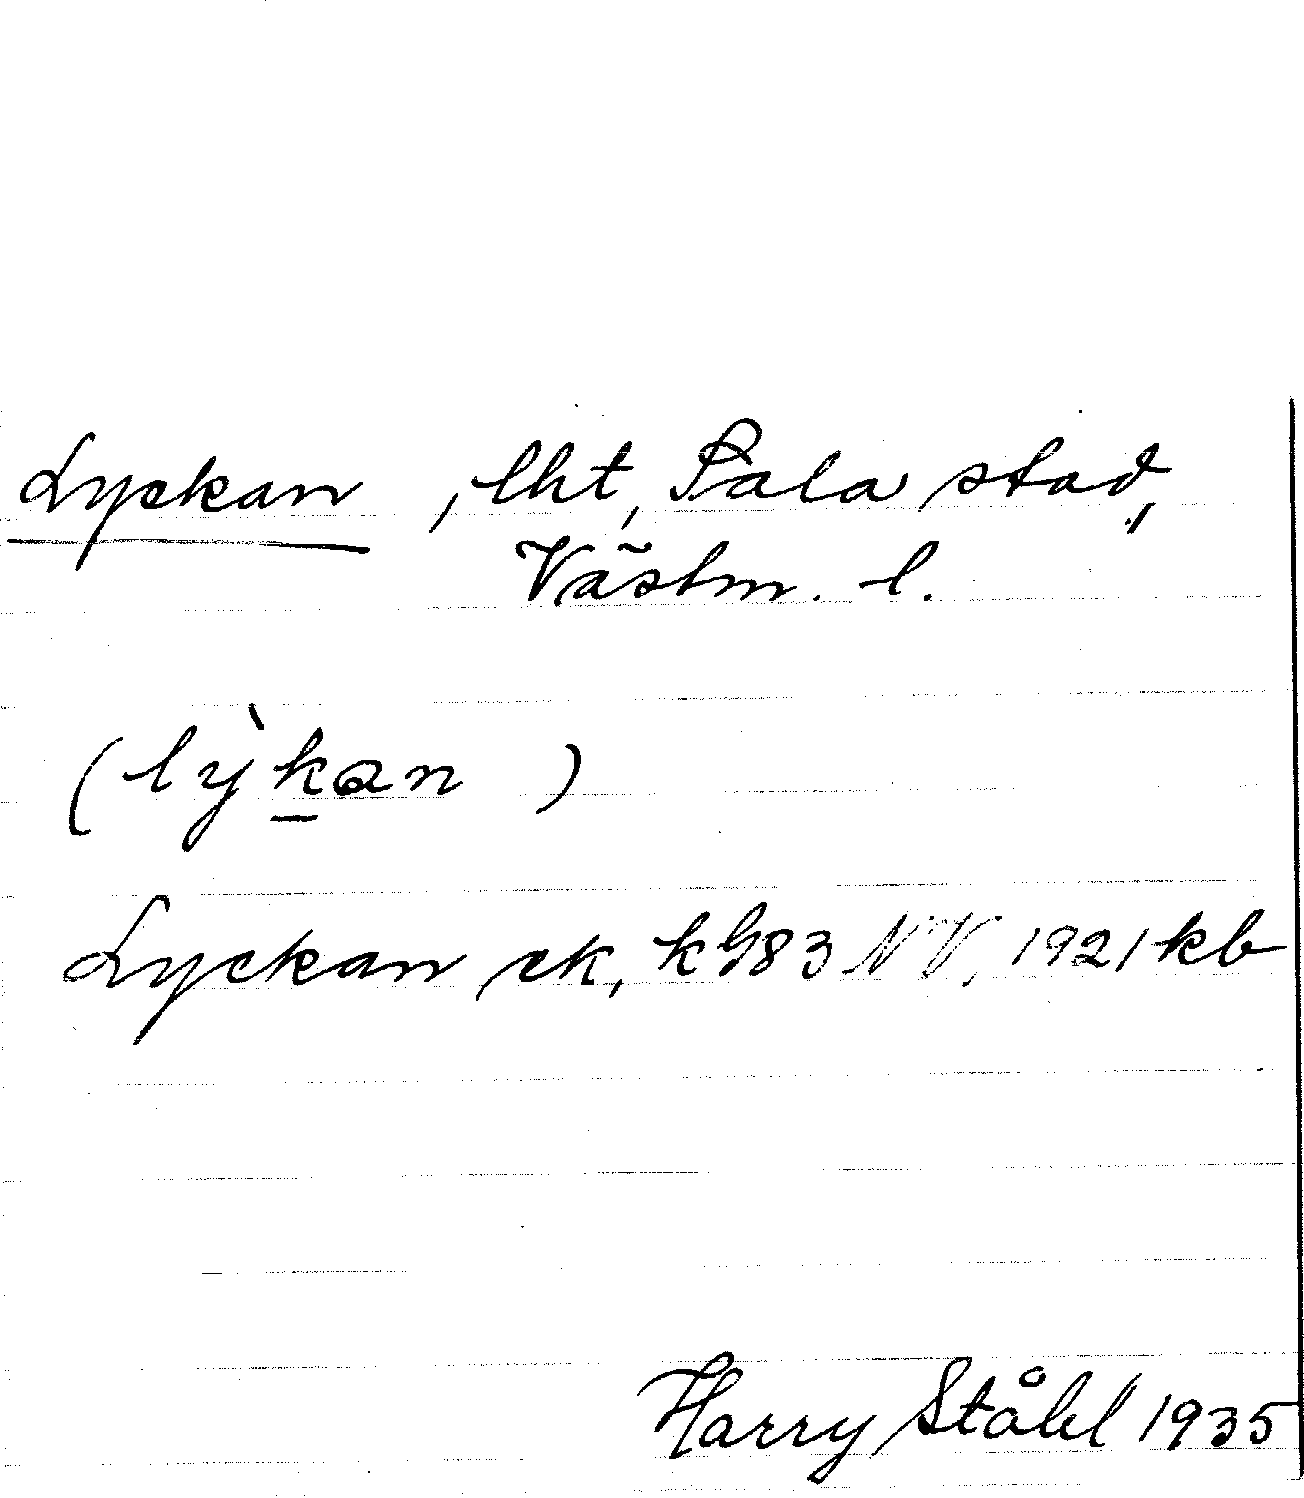 Lyckan, lht, Sala stad,
Västm. l.
(lỳkan)
Lyckan ek, kbl 83 NV, 1921 kb
Harry Ståhl 1935